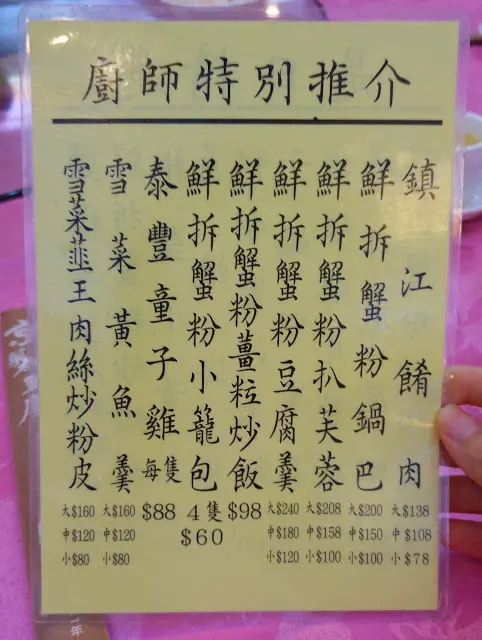 廚師特別推介
鎮江餚肉
大$138
中$108
小$78
鮮拆蟹粉鍋巴
大$200
中$150
小$100
鮮拆蟹粉扒芙蓉
大$208
中$158
小$100
鮮拆蟹粉豆腐羹
大$240
中$180
小$120
鮮拆蟹粉薑粒炒飯
$98
鮮拆蟹粉小籠包
4隻
$60
泰豐童子雞
每隻
$88
雪菜黃魚羹
大$160
中$120
小$80
雪菜韮王肉絲炒粉皮
大$160
中$120
小$80